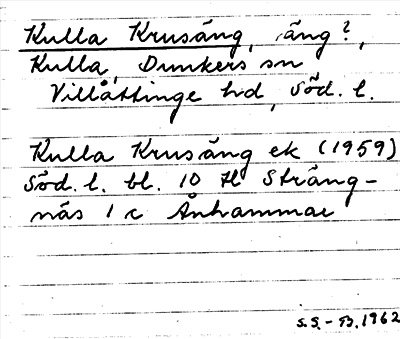 Kulla Krusäng, äng?,
Kulla, Dunkers sn
Villåttinge hd, Söd. l.
Kulla Krusäng ek (1959)
Söd. l. bl. 10 H Sträng-
näs 1 c Ånhammar
S.S. - B. 1962